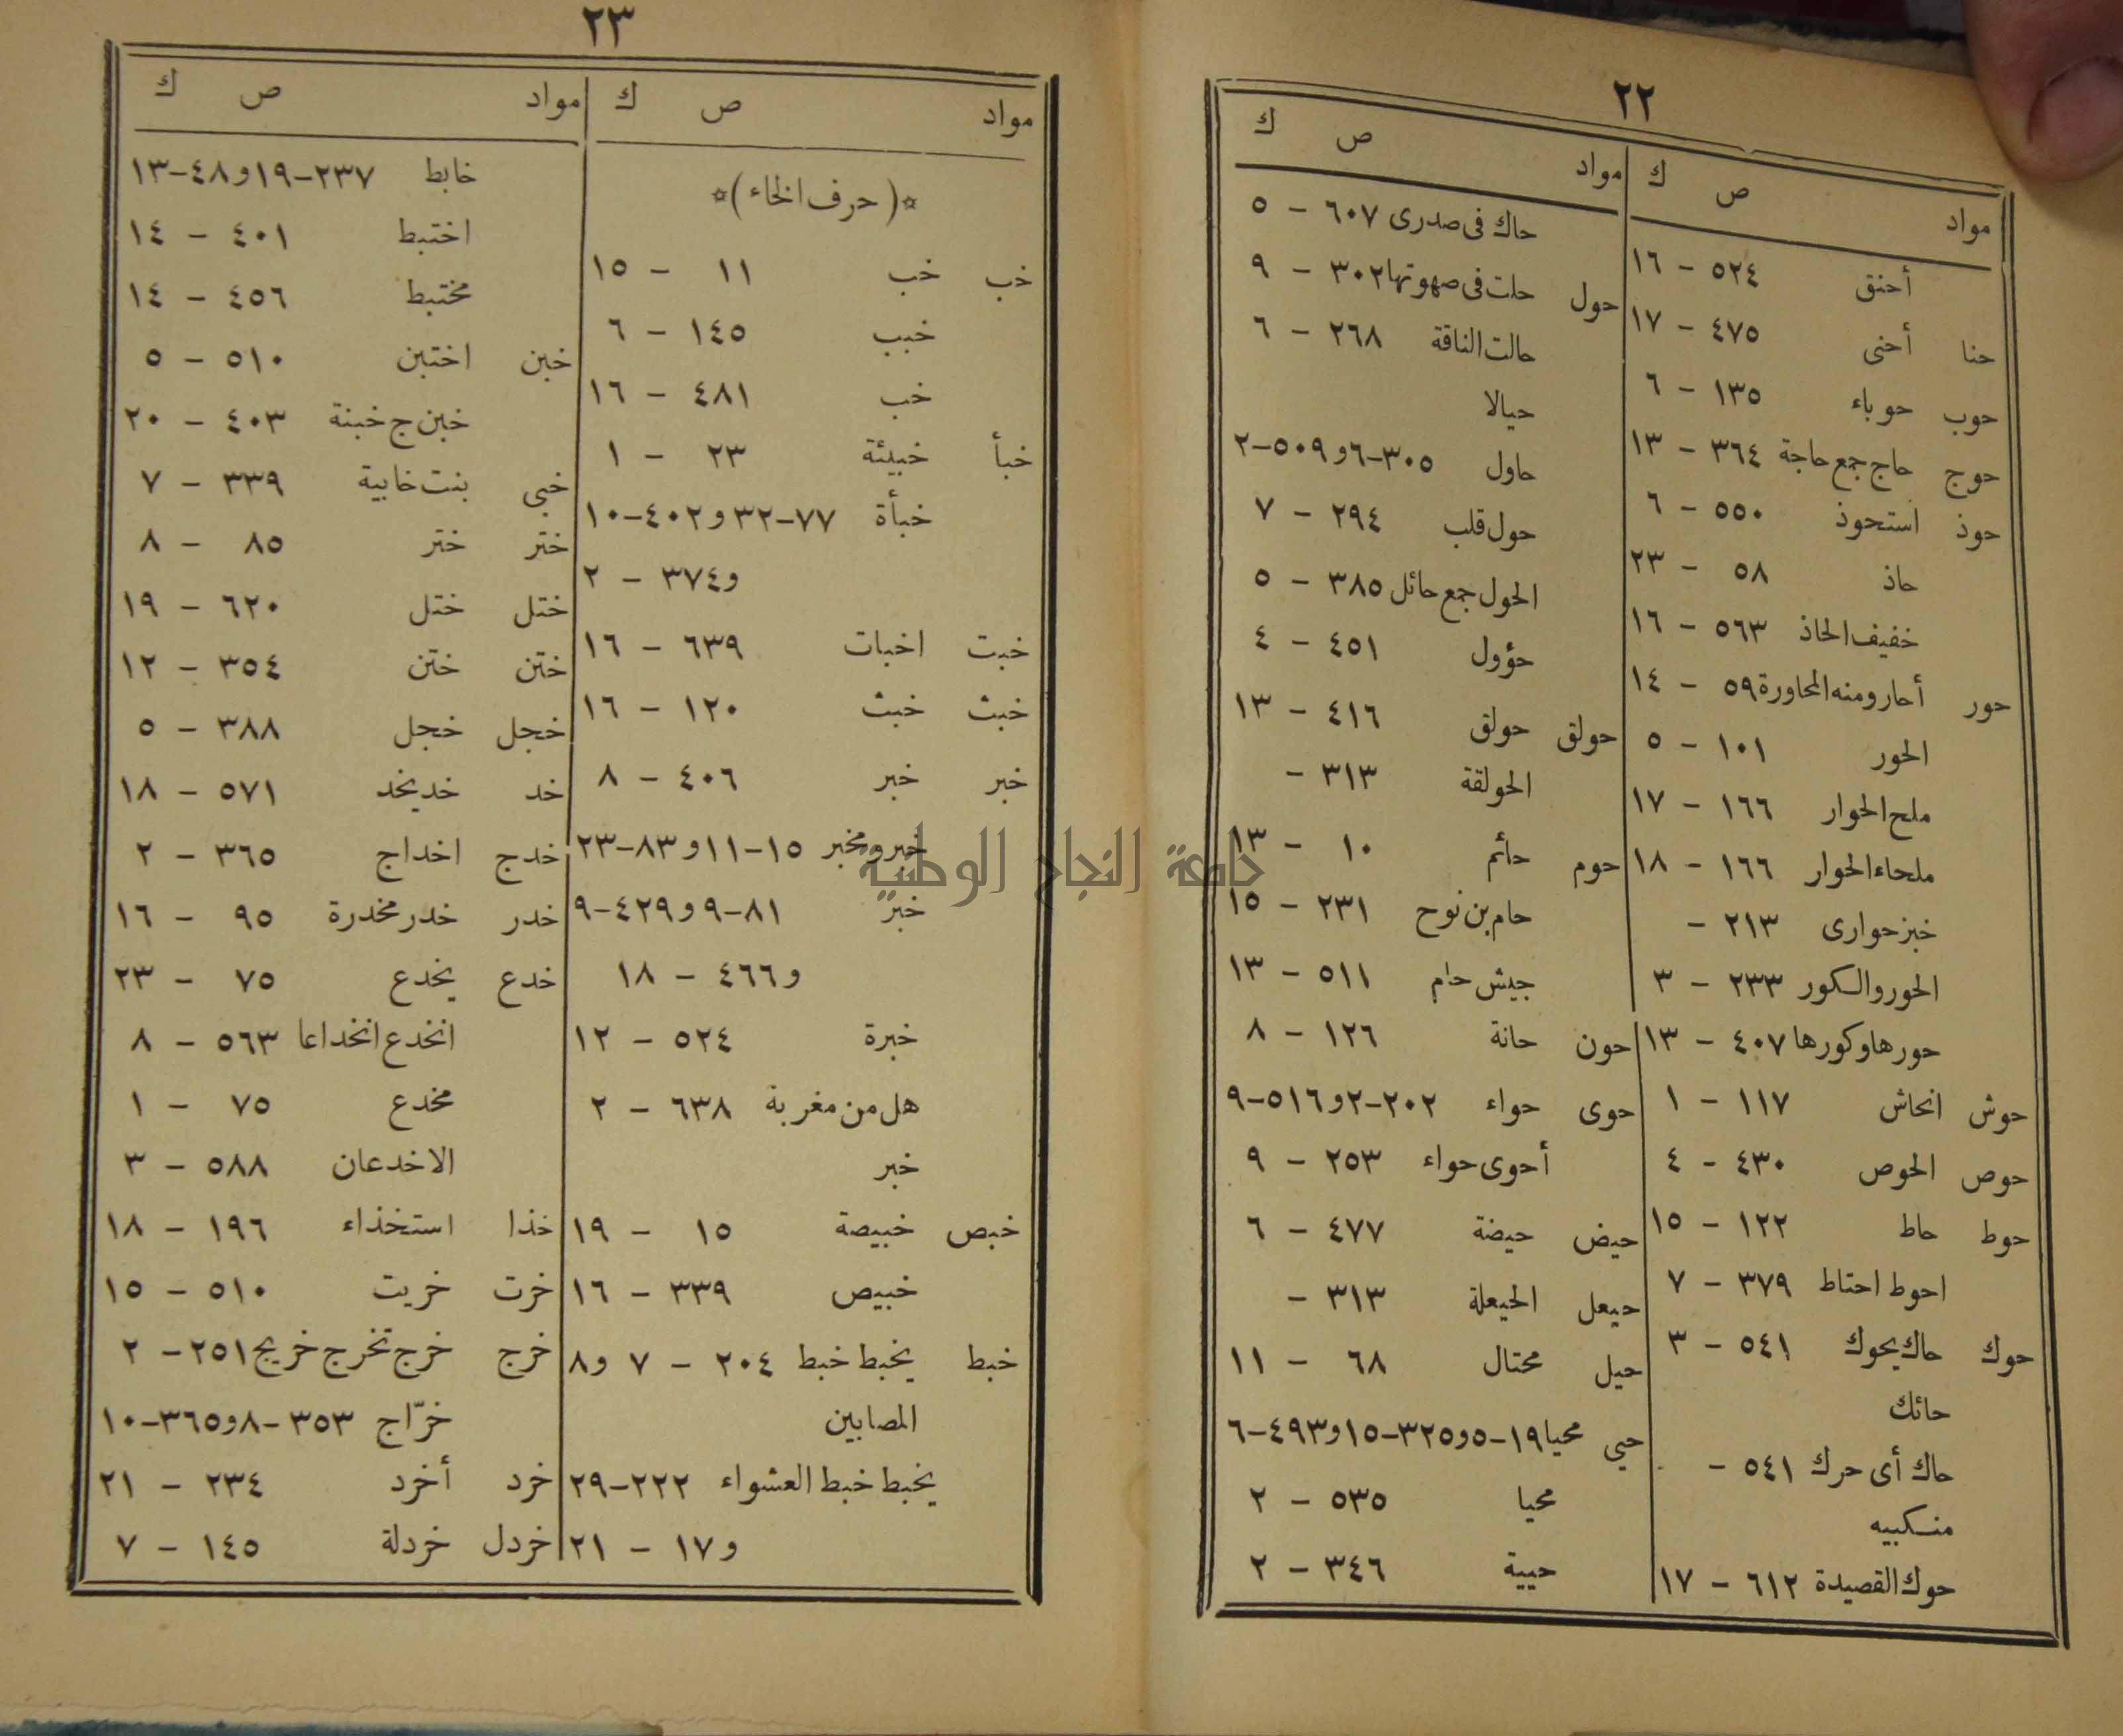 ٢٢
مواد ص ك
أحنق ٥٢٤ - ١٦
حنا أحنى ٤٧٥ - ١٧
حوب حوباء ١٣٥ - ٦
حوج حاج جمع حاجة ٣٦٤ - ١٣
حوذ استحوذ ٥٥٠ - ٦
حاذ ٥٨ - ٢٣
خفيف الحاذ ٥٦٣ - ١٦
حور أحار ومنه المحاورة ٥٩ - ١٤
الحور ١٠١ - ٥
ملح الحوار ١٦٦ - ١٧
ملحاء الحوار ١٦٦ - ١٨
خبز حوارى ٢١٣ -
الحور والكور ٢٣٣ - ٣
حورها وكورها ٤٠٧ - ١٣
حوش انحاش ١١٧ - ١
حوص الحوص ٤٣٠ - ٤
حوط حاط ١٢٢ - ١٥
احوط احتاط ٣٧٩ - ٧
حوك حاك يحوك ٥٤١ - ٣
حائك
حاك أى حرك ٥٤١ -
منكبيه
حوك القصيدة ٦١٢ - ١٧
مواد ص ك
حاك فى صدرى ٦٠٧ - ٥
حول حلت فى صهوتها ٣٠٢ - ٩
حالت الناقة ٢٦٨ - ٦
حيالا
حاول ٣٠٥-٦ و٥٠٩-٢
حول قلب ٢٩٤ - ٧
الحول جمع حائل ٣٨٥ - ٥
حؤول ٤٥١ - ٤
حولق حولق ٤١٦ - ١٣
الحولقة ٣١٣ -
حوم حائم ١٠ - ١٣
حام بن نوح ٢٣١ - ١٥
جيش حام ٥١١ - ١٣
حون حانة ١٢٦ - ٨
حوى حواء ٢٠٢-٢ و٥١٦-٩
أحوى حواء ٢٥٣ - ٩
حيض حيضة ٤٧٧ - ٦
حيعل الحيعلة ٣١٣ -
حيل محتال ٦٨ - ١١
حيي محيا ١٩-٥ و٣٢٥-١٥ و٤٩٣-٦
محيا ٥٣٥ - ٢
حيية ٣٤٦ - ٢
٢٣
مواد ص ك
✩(حرف الخاء)✩
خب خب ١١ - ١٥
خبب ١٤٥ - ٦
خب ٤٨١ - ١٦
خبأ خبيئة ٢٣ - ١
خبأة ٧٧-٣٢ و٤٠٢-١٠
و٣٧٤ - ٢
خبت اخبات ٦٣٩ - ١٦
خبث خبث ١٢٠ - ١٦
خبر خبر ٤٠٦ - ٨
خبر ومخبر ١٥-١١ و٨٣-٢٣
خبر ٨١-٩ و٤٢٩-٩
و٤٦٦ - ١٨
خبرة ٥٢٤ - ١٢
هل من مغربة ٦٣٨ - ٢
خبر
خبص خبيصة ١٥ - ١٩
خبيص ٣٣٩ - ١٦
خبط يخبط خبط ٢٠٤ - ٧ و٨
المصابين
يخبط خبط العشواء ٢٢٢-٢٩
و١٧ - ٢١
مواد ص ك
خابط ٢٣٧-١٩ و٤٨-١٣
اختبط ٤٠١ - ١٤
مختبط ٤٥٦ - ١٤
خبن اختبن ٥١٠ - ٥
خبن ج خبنة ٤٠٣ - ٢٠
خبى بنت خابية ٣٣٩ - ٧
ختر ختر ٨٥ - ٨
ختل ختل ٦٢٠ - ١٩
ختن ختن ٣٥٤ - ١٢
خجل خجل ٣٨٨ - ٥
خد خد يخد ٥٧١ - ١٨
خدج اخداج ٣٦٥ - ٢
خدر خدر مخدرة ٩٥ - ١٦
خدع يخدع ٧٥ - ٢٣
انخدع انخداعا ٥٦٣ - ٨
مخدع ٧٥ - ١
الاخدعان ٥٨٨ - ٣
خذا استخذاء ١٩٦ - ١٨
خرت خريت ٥١٠ - ١٥
خرج خرج تخرج خريج ٢٥١ - ٢
خرّاج ٣٥٣-٨ و٣٦٥-١٠
خرد أخرد ٢٣٤ - ٢١
خردل خردلة ١٤٥ - ٧
جامعة النجاح الوطنية